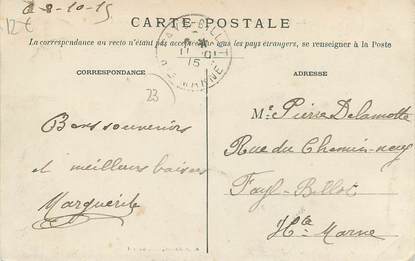 8-10-15
12€
CARTE POSTALE
La correspondance au recto n'étant pas acceptée par tous les pays étrangers, se renseigner à la Poste
FAYL-BILLOT
15
HTE MARNE
CORRESPONDANCE
ADRESSE
23
Bons souvenirs
et meilleurs baisers
Marguerite
Mr Pierre Delamotte
Rue du Chemin-neuf
Fayl-Billot
Hte Marne